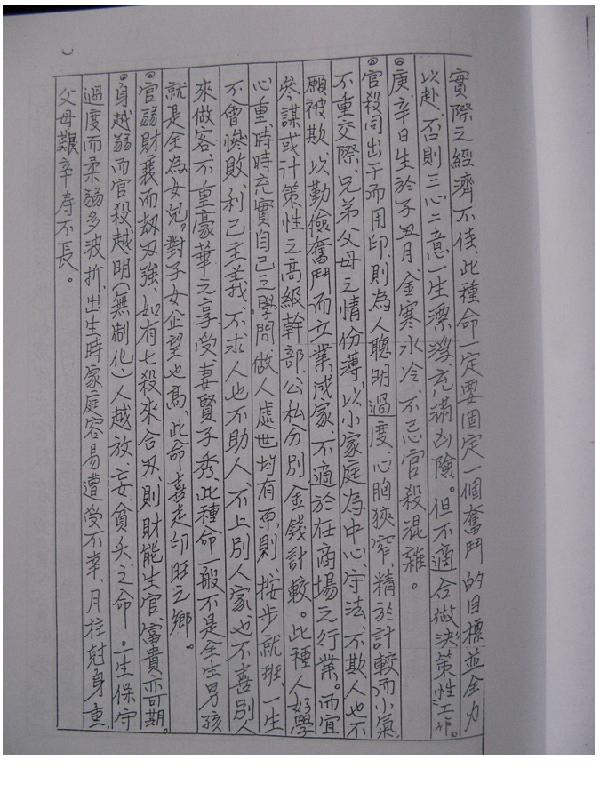 實際之經濟不佳,此種命一定要固定一個奮鬥的目標並全力
以赴、否則三心二意一生漂漂充滿凶險。但不適合做決策性工作。
◎庚辛日生於子丑月金寒水冷不忌官殺混雜。
◎官殺同出干而用印,則為人聰明過度、心胸狹窄精於計較而小氣
不重交際、兄弟父母之情份薄、以小家庭為中心、守法、不欺人也不
願被欺、以勤儉奮鬥而立業成家、不適於在商場之行業。而宜
參謀或計策性之高級幹部、公私分別金錢計較。此種人好學
心重、時時充實自己之學問做人處世均有原則、按步就班、一生
不會慘敗、利己主義、不求人也不助人、不上別人家也不喜別人
來做客、不望豪華之享受、妻賢子秀、此種命一般不是全生男孩
就是全為女兒。對子女企望也高、此命喜走印旺之鄉。
◎官弱財衰而劫刃強、如有七殺來合刃、則財能生官、富貴亦可期。
◎身越弱而官殺越明(無制化)人越放、妄貪夭之命。一生保守
過度而柔弱多波折、出生時家庭容易遭受不幸、月柱尅身重
父母艱辛寿不長。